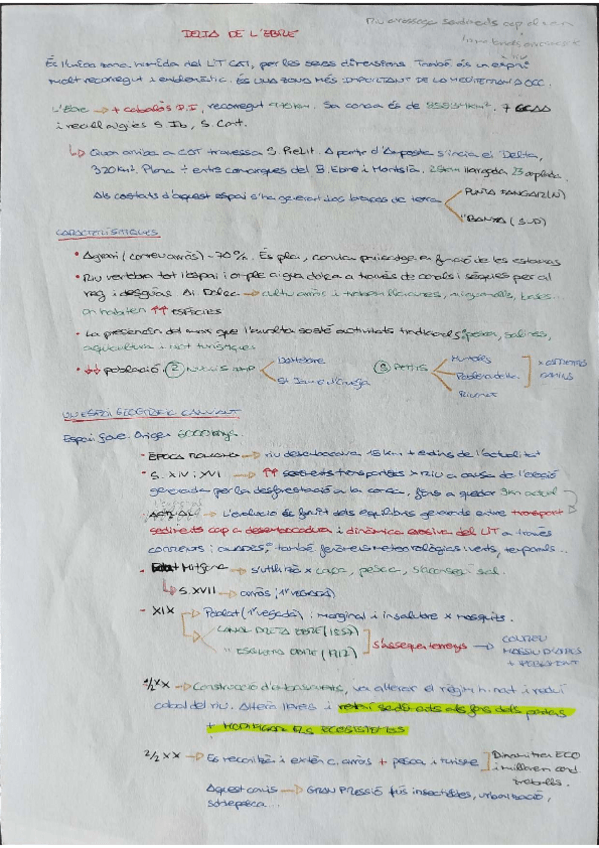 Riu arrossega sediments cap al mar
DELTA DE L'EBRE
És l'única zona humida del LIT CAT, per les seves dimensions. També és un espai
molt reconegut i emblemàtic. ÉS UNA ZONA MÉS IMPORTANT DE LA MEDITERRÀNIA OCC.
L'Ebre → + cabalós P.I, recorregut 910 km. Sa conca és de km². 7 CCAA
i recull aigües S. Ib, S. Cant.
↳ Quan arriba a CAT travessa S. PreLit. A partir d'Amposta s'inicia el Delta,
320 km². Plana ÷ entre comarques del B. Ebre i Montsià. 25km llargada
Als costats d'aquest espai s'ha generat dos braços de terra
PUNTA FANGAR (N)
" BANYA (SUD)
CARACTERÍSTIQUES
• Agrari (conreu arròs) - 70%. És pla, canvia paisatge en funció de les estacions
• Riu vertebra tot l'espai i omple aigua dolça a través de canals i sèquies per al
reg i desguàs. Ai. Dolça → cultiu arròs i també llacunes, aiguamolls, basses...
on habiten ↑↑ ESPÈCIES
• La presència del mar que l'envolta sosté activitats tradicionals: pesca, salines,
aqüicultura i act turístiques
• ↓↓ població
② NUCLIS
Deltebre
St Jaume d'Enveja
③ PETITS
Muntells
Poblenou delta
Riumar
UN ESPAI GEOGRÀFIC CANVIANT
Espai jove. Origen 6000 anys.
- ÈPOCA ROMANA → riu desembocava 15 km + endins de l'actualitat
- S. XIV i XVI → ↑↑ sediments transportats x RIU a causa de l'erosió
generada per la desforestació a la conca, fins a quedar 3km actual
- ACTUAL → L'evolució és fruit dels equilibris generats entre transport
sediments cap a desembocadura i dinàmica erosiva del LIT a través
corrents i onades, també fenòmens meteorològics: vents, temporals...
- Edat Mitjana → s'utilitza x caça, pesca, s'aconsegui sal.
↳ S. XVII → arròs (1ª VEGADA)
- XIX
Poblat (1ª vegada) i marginal i insalubre x mosquits.
CANAL DRETA EBRE (1857)
" ESQUERRA EBRE (1912)
s'assequen terrenys →
CONREU
MASSIU D'ARRÒS
+ POBLAMENT
1/2 XX → Construcció d'embassaments, va alterar el règim h. nat. i reduí
cabal del riu. Alterà llera i reté sediments als fons dels pantans
+ MODIFICAR ELS ECOSISTEMES
2/2 XX → Es reconeix i extèn c. arròs + pesca i turisme
Dinamitzen ECO
i milloren cond
treballs.
Aquest canvis → GRAN PRESSIÓ: ús insecticides, urbanització,
sobrepesca...